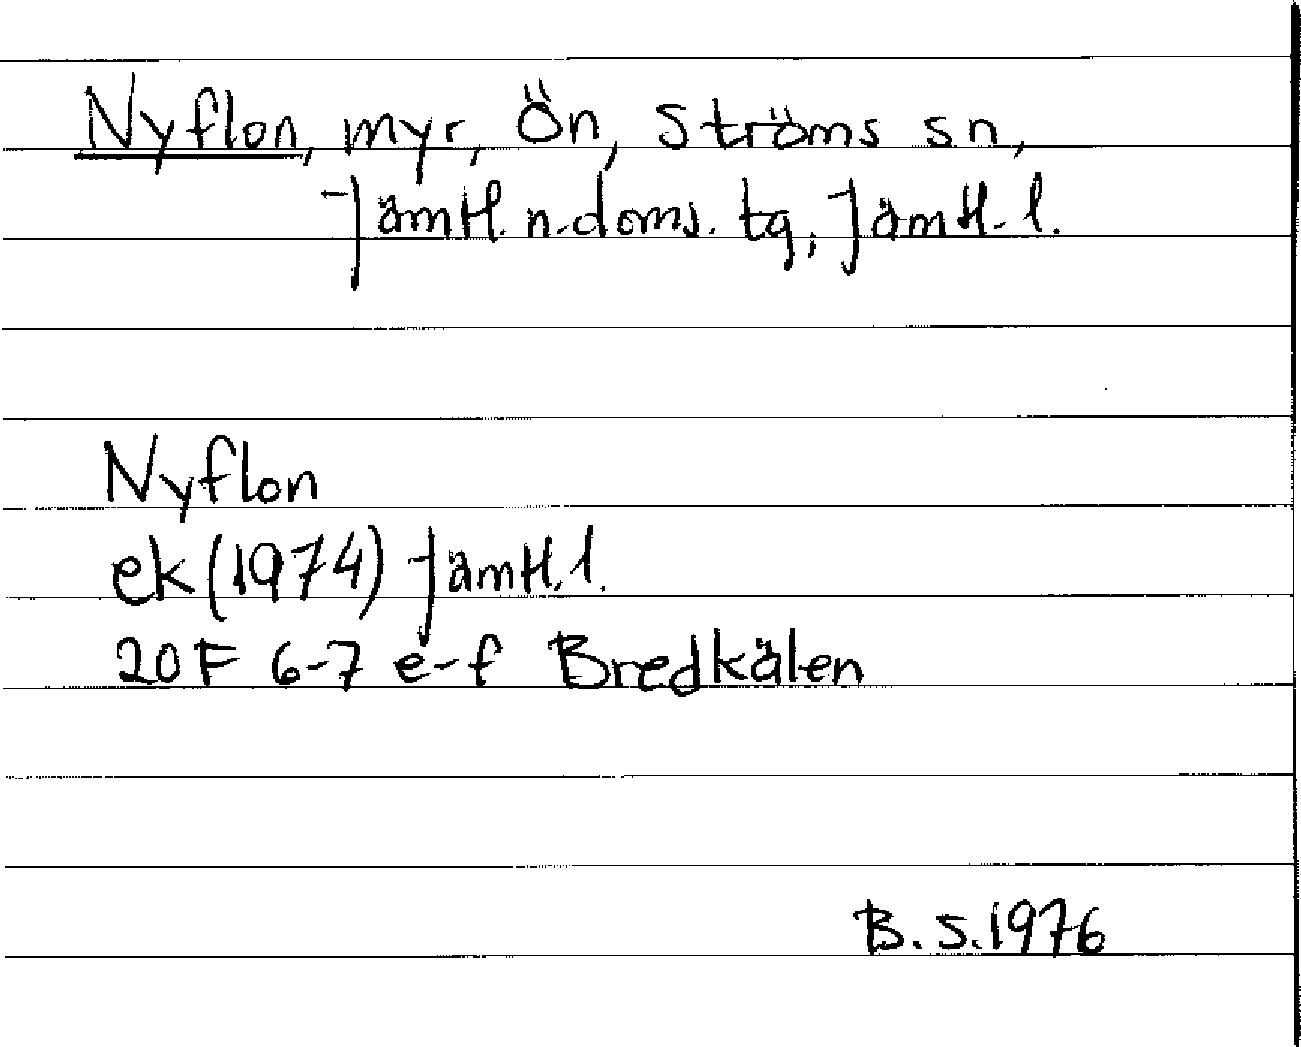 Nyflon, myr, Ön, Ströms sn,
Jämtl. n. doms. tg, Jämtl. l.
Nyflon
ek (1974) Jämtl. l.
20F 6-7 e-f Bredkälen
B. S. 1976